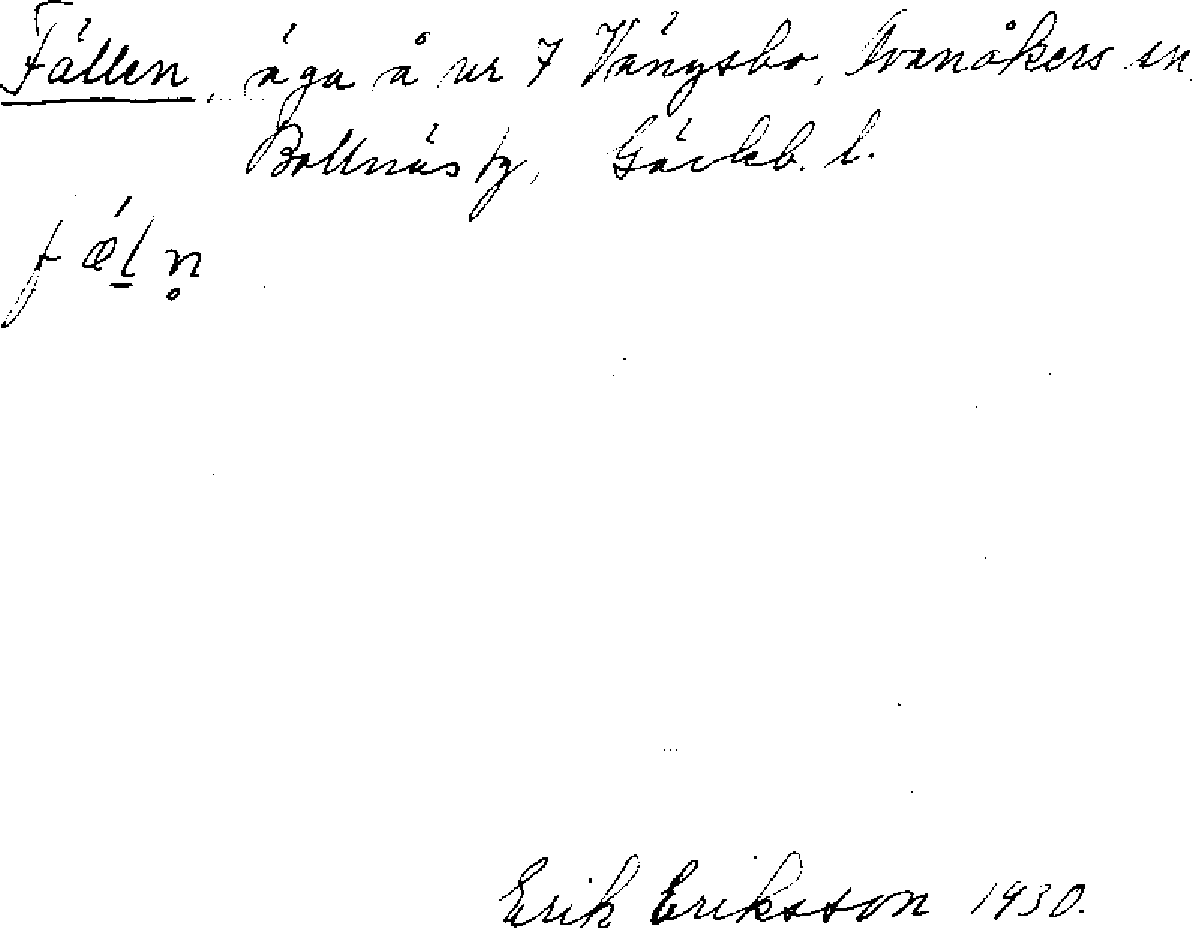 Fällen, äga å nr 7 Vängsbo, Svanåkers sn,
Bollnäs tg, Gävleb. l.
fä́ḷn̥
Erik Eriksson 1930.